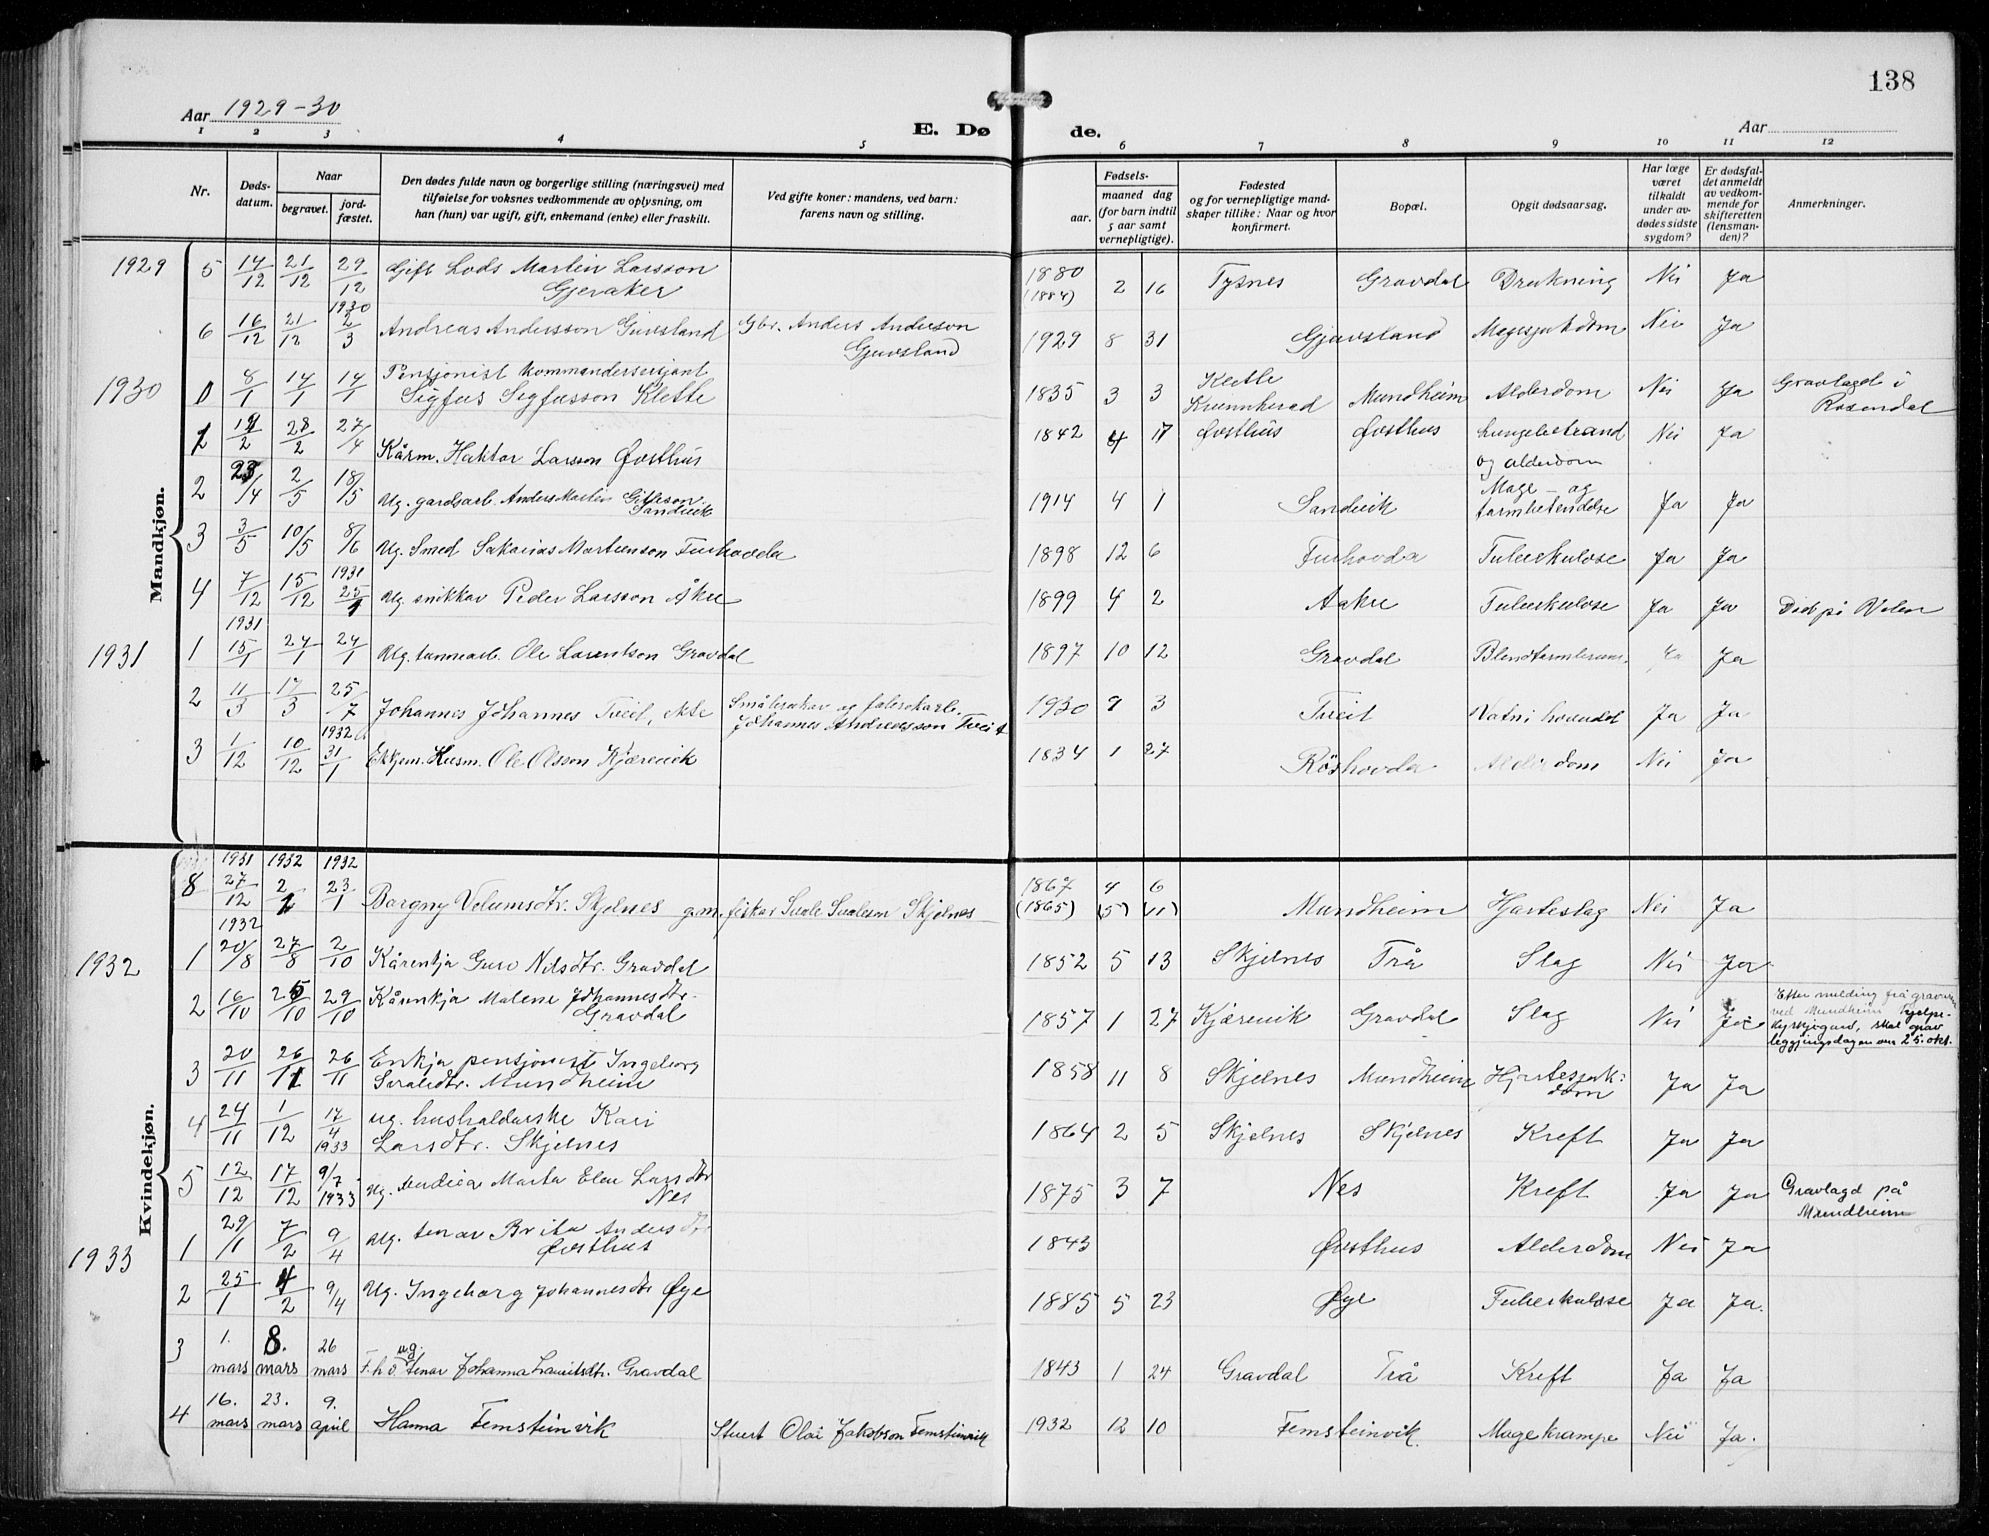 138
Aar 1929-30
E. Døde.
Aar
1 2 3 4 5 6 7 8 9 10 11 12
Nr.
Døds-
datum.
Naar
begravet.
jord-
fæstet.
Den dødes fulde navn og borgerlige stilling (næringsvei) med
tilføielse for voksnes vedkommende av oplysning, om
han (hun) var ugift, gift, enkemand (enke) eller fraskilt.
Ved gifte koner: mandens, ved barn:
farens navn og stilling.
Fødsels-
aar.
maaned dag
(for barn indtil
5 aar samt
vernepligtige).
Fødested
og for vernepligtige mand-
skaper tillike: Naar og hvor
konfirmert.
Bopæl.
Opgit dødsaarsag.
Har læge
været
tilkaldt
under av-
dødes sidste
sygdom?
Er dødsfal-
det anmeldt
av vedkom-
mende for
skifteretten
(lensman-
den)?
Anmerkninger.
Mandkjøn.
1929 5 14/12 21/12 29/12 Gift Lods Martin Larsson Gjeraker 1880 (1884) 2 16 Tysnes Gravdal Drukning Nei Ja
6 16/12 21/12 1930 2/3 Andreas Andersson Gjuvsland Gbr. Anders Anderson Gjuvsland 1929 8 31 Gjuvsland Magesjukdom Nei Ja
1930 0 8/1 14/1 14/1 Pensjonist Kommandersersjant Sigfus Sigfusson Klette 1835 3 3 Klette Kvinnherad Mundheim Alderdom Nei Ja Gravlagd i Rosendal
1 14/2 28/2 27/4 Kårm. Haktor Larsson Øvsthus 1842 4 17 Øvsthus Øvsthus Lungebetennd og alderdom Nei Ja
2 23/4 2/5 18/5 Ug. gardsarb. Anders Martin Gitleson Sandvik 1914 4 1 Sandvik Mage- og tarmbetendelse Ja Ja
3 3/5 10/5 8/6 Ug. Smed Sakarias Martinson Furhovda 1898 12 6 Furhovda Tuberkulose Ja Ja
4 7/12 15/12 1931 25/1 Ug. snikkar Peder Larsson Åkre 1899 4 2 Aakre Tuberkulose Ja Ja Død på Valen
1931 1 1931 15/1 24/1 24/1 Ug. tunnearb. Ole Larentson Gravdal 1897 10 12 Gravdal Blendtarmbrann. Ja Ja
2 11/3 17/3 25/7 Johannes Johannes Tveit, ekte Småbrukar og fabrikarb. Johannes Andreasson Tveit 1930 9 3 Tveit Vatn i hovudet Ja Ja
3 1/12 10/12 1932 31/1 Ekkjem. Husm. Ole Olsson Kjærevik 1834 1 27 Röshovda Alderdom Nei Ja
Kvindekjøn.
8 1931 27/12 1932 2/1 1932 23/1 Bargny Velumsdtr. Skjelnes g.m. fiskar Sivale Sivaleson Skjelnes 1867 (1865) 4 (5) 6 (11) Mundheim Hjarteslag Nei Ja
1932 1 1932 20/8 27/8 2/10 Kårenkja Guro Nilsdtr. Gravdal 1852 5 13 Skjelnes Trå Slag Nei Ja
2 16/10 25/10 29/10 Kårenkja Malene Johannesdtr. Gravdal 1857 1 27 Kjærevik Gravdal Slag Nei Ja Etter melding frå gravaren ved Mundheim hjelpe-kyrkjegard, skal grav leggjingsdagen vera 25. okt.
3 20/11 26/11 26/11 Enkja pensjonist Ingeborg Sivalsdtr. Mundheim 1858 11 8 Skjelnes Mundheim Hjartesjukdom Ja Ja
4 24/11 1/12 17/4 1933 ug. hushaldarske Kari Larsdtr. Skjelnes 1864 2 5 Skjelnes Skjelnes Kreft Ja Ja
5 12/12 17/12 9/7 1933 Ug. Andrea Marta Elen Larsdtr Nes 1875 3 7 Nes Kreft Ja Ja Gravlagd på Mundheim
1933 1 29/11 7/2 9/4 Ug. tenar Brita Andersdtr Øvsthus 1843 Øvsthus Alderdom Nei Ja
2 25/1 4/2 9/4 Ug. Ingeborg Johannesdtr Øye 1885 5 23 Øye Tuberkulose Ja Ja.
3 1. mars 8. mars 26 mars F.h.v. ug. tenar Johanna Lauritsdtr. Gravdal 1843 1 24 Gravdal Trå Kreft Ja Ja
4 16. mars 23. mars 9. april Hanna Femsteinvik Stuert Olai Jakobson Femsteinvik 1932 12 10 Femsteinvik Magekrampe Nei Ja.